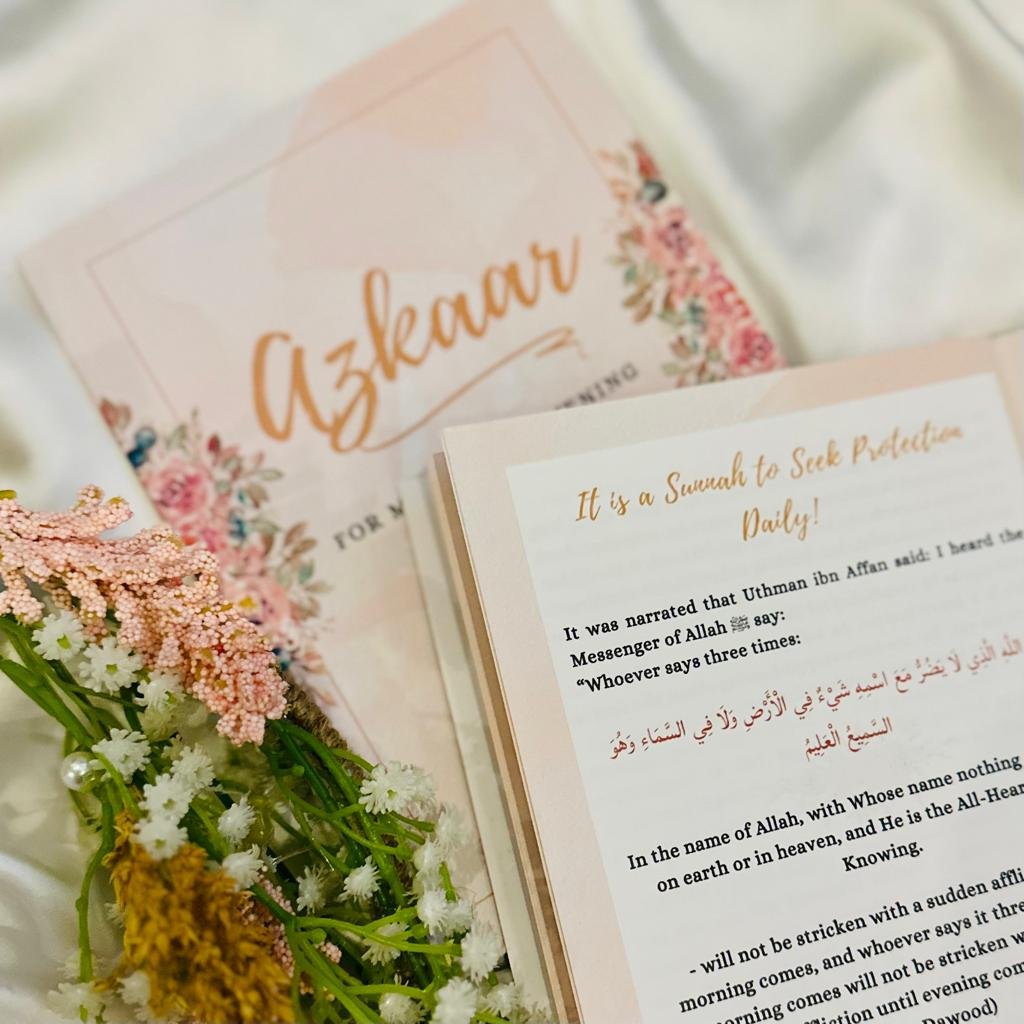 Azkaar
FOR M
ENING
It is a Sunnah to Seek Protection
Daily!
It was narrated that Uthman ibn Affan said: I heard the
Messenger of Allah ﷺ say:
“Whoever says three times:
اللَّهِ الَّذِي لَا يَضُرُّ مَعَ اسْمِهِ شَيْءٌ فِي الْأَرْضِ وَلَا فِي السَّمَاءِ وَهُوَ
السَّمِيعُ الْعَلِيمُ
In the name of Allah, with Whose name nothing
on earth or in heaven, and He is the All-Hear
Knowing.
- will not be stricken with a sudden affli
morning comes, and whoever says it thre
orning comes will not be stricken w
iction until evening com
Dawood)